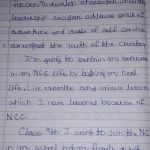 forces. To develop character, discip
leadership secular outlook, spirit of
adventure and ideals of self service
amongst the youth of the country
I'm going to explain my experience
in my NCC life by taking my real
life. Live examples and unique lessons
which I have learned because of
NCC.
Class 9th I want to join the NCC
in my school but my family didn't